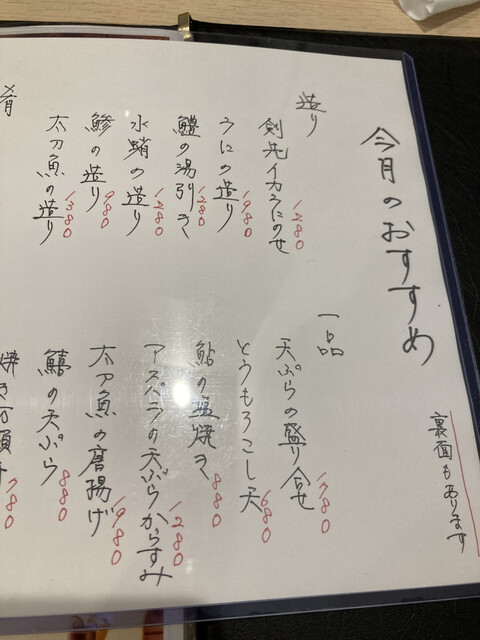 今月のおすすめ
裏面もあります
造り
剣先イカうにのせ 1280
うにの造り 1980
鱧の湯引き 1280
水蛸の造り 1280
鯵の造り 980
太刀魚の造り 1380
肴
一品
天ぷらの盛り合せ 1780
とうもろこし天 680
鮎の塩焼き 880
アスパラの天ぷらからすみ 1280
太刀魚の唐揚げ 1980
鱚の天ぷら 880
焼き万願 780